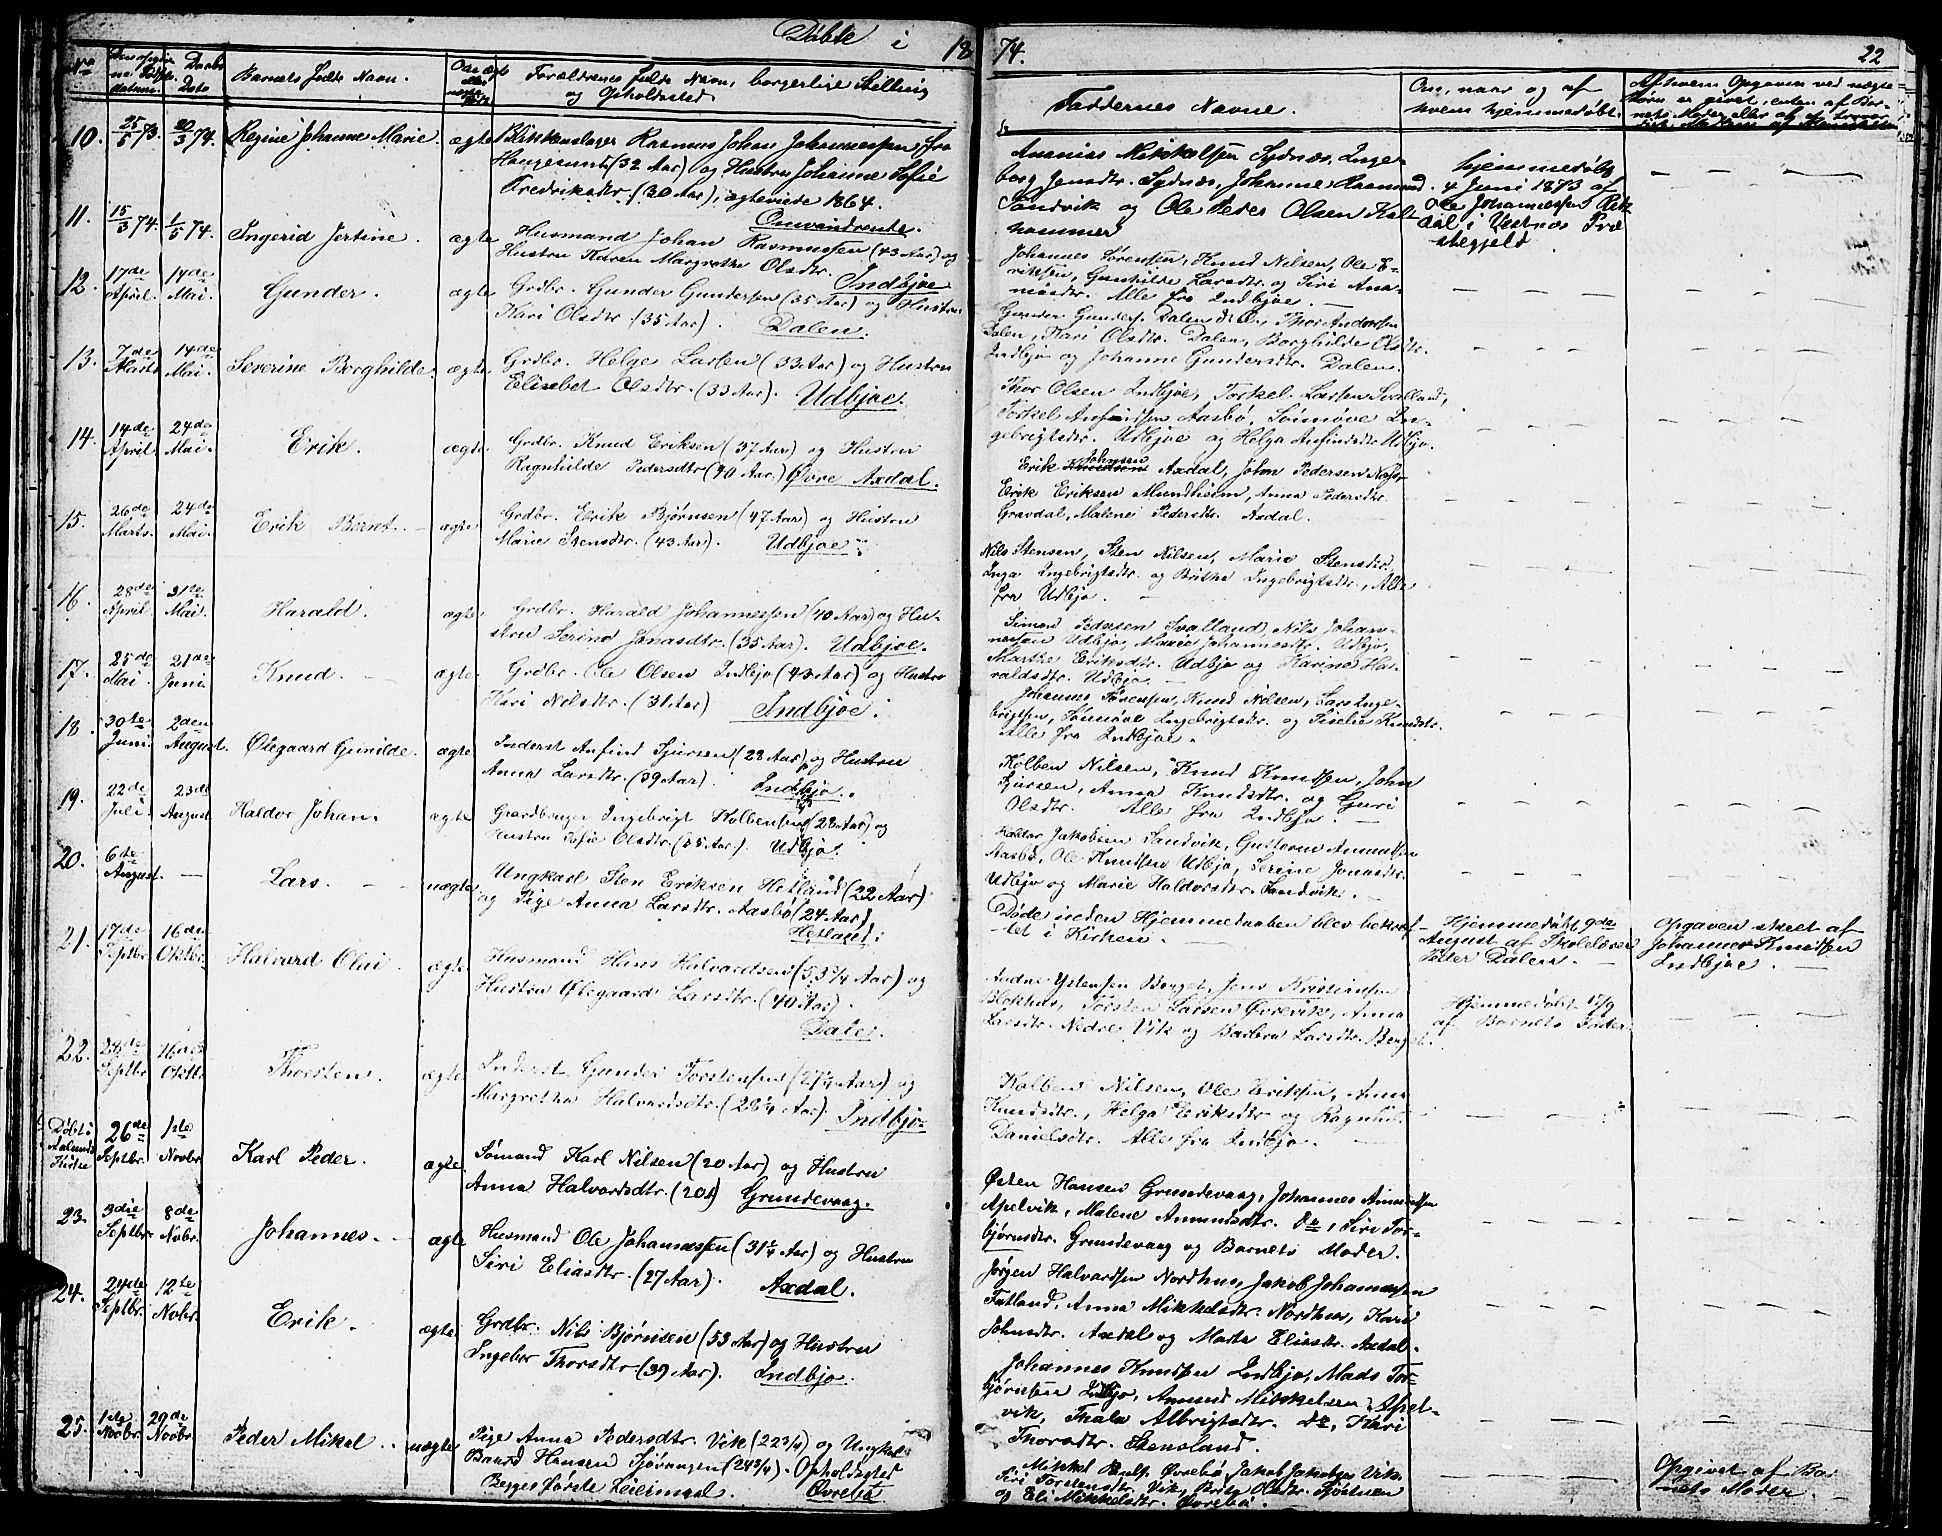 Døbte i 1874. 22
No
Barnets fulde Navn.
Forældrenes fulde Navn, borgerlige Stilling
og Opholdssted
Faddernes Navne.
Om, naar og af
hvem hjemmedøbt.
10. 25/5 73. 20/3 74. Regine Johanne Marie. ægte Blikkenslager Rasmus Johan Johannessen, fra
Haugesund (32 Aar) og Hustru Johanne Sofie
Fredriksdtr. (30 Aar), ægteviede 1864.
Omvandrende.
Ananias Mikkelsen Sydnes, Inge-
borg Jensdtr. Sydnes, Johanne Rasmusd.
Sandvik og Ole Peder Olsen Kal-
hammer
Hjemmedøbt
4 Juni 1873 af
Ole Johannessen
i Vestnes Præ
stegjeld.
11. 15/3 74. 1/5 74. Ingerid Jertine. ægte Husmand Johan Rasmussen (43 Aar) og
Hustru Karen Margrethe Olsdtr. Indbjoe
Johannes Sørensen, Knud Nilsen, Ole E-
riksen, Gunhilde Larsdtr. og Siri Ana-
niasdtr. Alle fra Indbjoe.
12. 17de April. 14de Mai. Gunder. ægte Grdbr. Gunder Gundersen (35 Aar) og Hustru
Kari Olsdtr. (35 Aar). Dalen.
Gunder Gunders. Dalen, Thor Andersen
Dalen, Kari Olsdtr. Dalen, Borghilde Olsdtr.
Indbjo og Johanne Gundersdtr. Dalen.
13. 7de Marts 14de Mai. Severine Borghilde. ægte. Grdbr. Helge Larsen (33 Aar) og Hustru
Elisabet Olsdtr. (33 Aar). Udbjoe.
Thor Olsen Indbjoe, Torkel Larsen Svalland,
Torkel Anfindsen Aasbø, Sønnøve In-
gebrigtsdtr. Udbjoe og Helga Anfindsdtr. Udbjo.
14. 14de April. 24de Mai. Erik. ægte. Grdbr. Knud Eriksen (37 Aar) og Hustru
Ragnhilde Pedersdtr. (40 Aar.) Øvre Axdal.
Erik Johnsen Axdal, John Pedersen Næs,
Erik Eriksen Mundheim, Anna Pedersdtr.
Gravdal, Malene Pedersdtr. Axdal.
15. 26de Marts. 24de Mai. Erik Bernt. ægte Grdbr. Erik Bjørnsen (47 Aar) og Hustru
Marie Stensdtr. (43 Aar). Udbjoe.
Nils Stensen, Sten Nilsen, Marie Stensdtr.
Inga Ingebrigtsdtr. og Brithe Ingebrigtsdtr., Alle
fra Udbjo.
16. 28de April 31te Mai. Harald. ægte Grdbr. Harald Johannessen (40 Aar) og Hu-
stru Serine Jonasdtr. (35 Aar). Udbjoe.
Simon Pedersen Svalland, Nils Johan-
nessen Udbjo, Marie Johannesdtr. Udbjo,
Marthe Eriksdtr. Udbjo og Karine Ha-
raldsdtr. Udbjo.
17. 25de Mai 21de Juni. Knud. ægte. Grdbr. Ole Olsen Indbjo (43 Aar) og Hustru
Kari Nilsdtr. (31 Aar) Indbjoe.
Johannes Sørensen, Knud Nilsen, Lars Inge-
brigtsen, Sønnøve Ingebrigtsdtr. og Knudsdtr.
Alle fra Indbjoe.
18. 30te Juni. 2den August. Ølegaard Gunilde. ægte Inderst Anfind Sjursen (28 Aar) og Hustru
Anna Larsdtr. (39 Aar). Indbjo.
Kolben Nilsen, Knud Knudsen, John
Sjursen, Anna Knudsdtr. og Guri
Olsdtr. Alle fra Indbjo.
19. 22de Juli. 23de August Haldor Johan. ægte Gaardbruger Ingebrigt Kolbensen (28 Aar) og
Hustru Sofie Olsdtr. (35 Aar). Udbjo.
Haldor Jakobsen Sandvik, Gustav Amundsen
Aasbø, Ole Knudsen Udbjo, Serine Jonasdtr.
Udbjo og Marie Haldorsdtr. Sandvik.
20. 6te August. Lars. uægte. Ungkarl Sten Eriksen Hetland (22 Aar)
og Pige Anna Larsdtr. Aasbø (24 Aar).
Hetland.
Døde inden Hjemmedaaben blev bekræf-
tet i Kirken.
Hjemmedøbt 9de
August af Skolelærer
Peder Dalen.
Opgaven skeet af
Johannes Knudsen
Indbjoe.
21. 17de Septbr. 16de Oktbr. Halvard Olai. ægte Husmand Hans Halvardsen (53 3/4 Aar) og
Hustru Ølegaard Larsdtr. (40 Aar).
Dale.
Andne Ystensen Berget, Jens Kristiansen
Blokhus, Torsten Larsen Øvrevik, Anna
Larsdtr. Nedre Vik og Barbra Larsdtr. Berget.
Hjemmedøbt 17/9
af Barnets Fader.
22. Septbr. Oktbr. Thorsten. ægte Inderst Gunder Torstensen (27 1/4 Aar) og
Margrethe Halvardsdtr. (28 1/4 Aar). Indbjo.
Kolben Nilsen, Ole Eriksen, Anna
Knudsdtr., Helga Eriksdtr. og Ragnhild
Danielsdtr. Alle fra Indbjo.
Døbt i
Kirke
26de Septbr. 1ste Novbr. Karl Peder. ægte. Sømand Karl Nilsen (20 Aar) og Hustru
Anna Halvardsdtr. (20) Grundevaag.
Østen Hansen Grundevaag, Johannes Amundsen
Apelvik, Malene Amundsdtr. do, Siri Tor-
bjørnsdtr. Grundevaag og Barnets Moder.
23. 3die Septbr. 8de Novbr. Johannes. ægte Husmand Ole Johannessen (31 1/4 Aar) og Hustru
Siri Eliasdtr. (27 Aar). Axdal.
Jørgen Halvardsen Nordhus, Jakob Johannessen
Fatland, Anna Mikkelsdtr. Nordhus, Kari
Johnsdtr. Axdal og Marta Eliasdtr. Axdal.
24. 24de Septbr. 12te Novbr. Erik. ægte. Grdbr. Nils Bjørnsen (53 Aar) og Hustru
Ingebor Thorsdtr. (39 Aar). Indbjo.
Johannes Knudsen Indbjo, Mads Tor-
bjørnsen Indbjo, Amund Mikkelsen Apel-
vik, Thala Albrigtsdtr. do, Kari
Thorsdtr. Stensland.
25. 1ste Novbr. 29de Novbr. Peder Mikal. uægte Pige Anna Pedersdtr. Vik (22 3/4) og Ungkarl
Baard Hansen Sjøvangen (24 3/4). Opholdssted
Begges første Leiermaal. Øvrebø
Mikkel Øvrebø, Jakob Jakobsen Vik,
Siri Torstensdtr. Vik, Olsdtr.
og Eli Mikkelsdtr. Øvrebø.
Opgivet af Bar-
nets Moder.